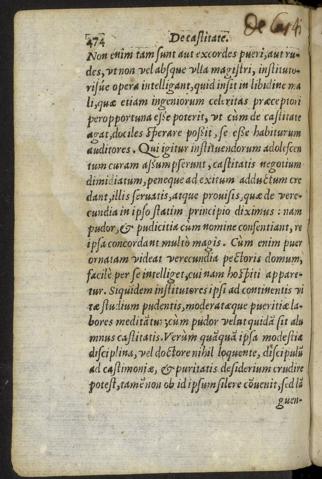 De Cast
474 De castitate.
Non enim tam sunt aut excordes pueri, aut ru-
des, vt non vel absque vlla magistri, instituto-
risúe opera intelligant, quid insit in libidine ma
li, quæ etiam ingeniorum celeritas præceptori
peropportuna esse poterit, vt cùm de castitate
agat, dociles sperare possit, se esse habiturum
auditores. Qui igitur instituendorum adolescen
tum curam assumpserunt, castitatis negotium
dimidiatum, peneque ad exitum adductum cre
dant, illis seruatis, atque prouisis, quæ de vere-
cundia in ipso statim principio diximus: nam
pudor, & pudicitia cum nomine consentiant, re
ipsa concordant multò magis. Cùm enim puer
ornatam videat verecundia pectoris domum,
facilè per se intelliget, cui nam hospiti appare-
tur. Siquidem institutores ipsi ad continentis vi
tæ studium pudentis, moderatæque pueritiæ la-
bores meditãtur: cùm pudor velut quidã sit alu
mnus castitatis. Verùm quãquã ipsa modestiæ
disciplina, vel doctore nihil loquente, discipulũ
ad castimoniæ, & puritatis desiderium erudire
potest, tamẽ non ob id ipsum silere cõuenit, sed lã
guen-